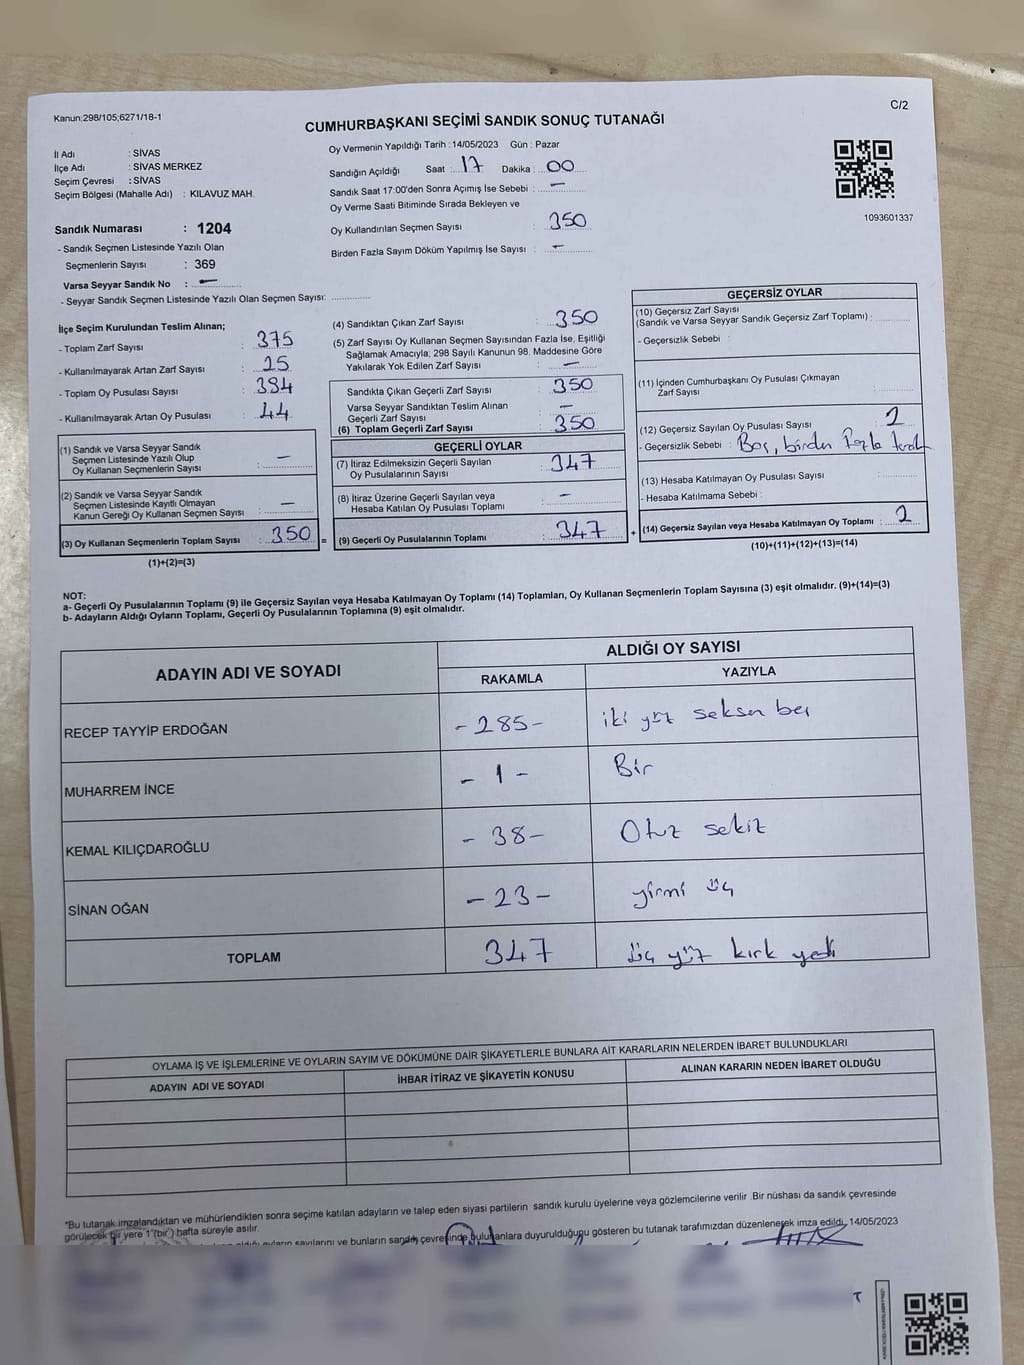 Kanun;298/105;6271/18-1
C/2
CUMHURBAŞKANI SEÇİMİ SANDIK SONUÇ TUTANAĞI
İl Adı : SİVAS
İlçe Adı : SİVAS MERKEZ
Seçim Çevresi : SİVAS
Seçim Bölgesi (Mahalle Adı) : KILAVUZ MAH.
Sandık Numarası : 1204
- Sandık Seçmen Listesinde Yazılı Olan
Seçmenlerin Sayısı : 369
Varsa Seyyar Sandık No : –
- Seyyar Sandık Seçmen Listesinde Yazılı Olan Seçmen Sayısı:
Oy Vermenin Yapıldığı Tarih : 14/05/2023 Gün : Pazar
Sandığın Açıldığı Saat : 17 Dakika : 00
Sandık Saat 17:00'den Sonra Açımış İse Sebebi : –
Oy Verme Saati Bitiminde Sırada Bekleyen ve
Oy Kullandırılan Seçmen Sayısı : 350
Birden Fazla Sayım Döküm Yapılmış İse Sayısı : –
1093601337
İlçe Seçim Kurulundan Teslim Alınan;
- Toplam Zarf Sayısı : 375
- Kullanılmayarak Artan Zarf Sayısı : 25
- Toplam Oy Pusulası Sayısı : 394
- Kullanılmayarak Artan Oy Pusulası : 44
(1) Sandık ve Varsa Seyyar Sandık
Seçmen Listesinde Yazılı Olup
Oy Kullanan Seçmenlerin Sayısı : –
(2) Sandık ve Varsa Seyyar Sandık
Seçmen Listesinde Kayıtlı Olmayan
Kanun Gereği Oy Kullanan Seçmen Sayısı : –
(3) Oy Kullanan Seçmenlerin Toplam Sayısı : 350 =
(1)+(2)=(3)
(4) Sandıktan Çıkan Zarf Sayısı : 350
(5) Zarf Sayısı Oy Kullanan Seçmen Sayısından Fazla İse, Eşitliği
Sağlamak Amacıyla; 298 Sayılı Kanunun 98. Maddesine Göre
Yakılarak Yok Edilen Zarf Sayısı : –
Sandıkta Çıkan Geçerli Zarf Sayısı : 350
Varsa Seyyar Sandıktan Teslim Alınan
Geçerli Zarf Sayısı : –
(6) Toplam Geçerli Zarf Sayısı : 350
GEÇERLİ OYLAR
(7) İtiraz Edilmeksizin Geçerli Sayılan
Oy Pusulalarının Sayısı : 347
(8) İtiraz Üzerine Geçerli Sayılan veya
Hesaba Katılan Oy Pusulası Toplamı : –
(9) Geçerli Oy Pusulalarının Toplamı : 347 +
GEÇERSİZ OYLAR
(10) Geçersiz Zarf Sayısı
(Sandık ve Varsa Seyyar Sandık Geçersiz Zarf Toplamı) :
- Geçersizlik Sebebi :
(11) İçinden Cumhurbaşkanı Oy Pusulası Çıkmayan
Zarf Sayısı :
(12) Geçersiz Sayılan Oy Pusulası Sayısı : 2
- Geçersizlik Sebebi : Boş, birden fazla taraf
(13) Hesaba Katılmayan Oy Pusulası Sayısı :
- Hesaba Katılmama Sebebi :
(14) Geçersiz Sayılan veya Hesaba Katılmayan Oy Toplamı : 2
(10)+(11)+(12)+(13)=(14)
NOT:
a- Geçerli Oy Pusulalarının Toplamı (9) ile Geçersiz Sayılan veya Hesaba Katılmayan Oy Toplamı (14) Toplamları, Oy Kullanan Seçmenlerin Toplam Sayısına (3) eşit olmalıdır. (9)+(14)=(3)
b- Adayların Aldığı Oyların Toplamı, Geçerli Oy Pusulalarının Toplamına (9) eşit olmalıdır.
ADAYIN ADI VE SOYADI
ALDIĞI OY SAYISI
RAKAMLA YAZIYLA
RECEP TAYYİP ERDOĞAN -285- iki yüz seksen beş
MUHARREM İNCE - 1 - Bir
KEMAL KILIÇDAROĞLU - 38- Otuz sekiz
SİNAN OĞAN -23- yirmi üç
TOPLAM 347 üç yüz kırk yedi
OYLAMA İŞ VE İŞLEMLERİNE VE OYLARIN SAYIM VE DÖKÜMÜNE DAİR ŞİKAYETLERLE BUNLARA AİT KARARLARIN NELERDEN İBARET BULUNDUKLARI
ADAYIN ADI VE SOYADI İHBAR İTİRAZ VE ŞİKAYETİN KONUSU ALINAN KARARIN NEDEN İBARET OLDUĞU
*Bu tutanak imzalandıktan ve mühürlendikten sonra seçime katılan adayların ve talep eden siyasi partilerin sandık kurulu üyelerine veya gözlemcilerine verilir .Bir nüshası da sandık çevresinde
görülecek bir yere 1 (bir ) hafta süreyle asılır.
aldığı oyların sayılarını ve bunların sandık çevresinde bulunanlara duyurulduğunu gösteren bu tutanak tarafımızdan düzenlenerek imza edildi. 14/05/2023